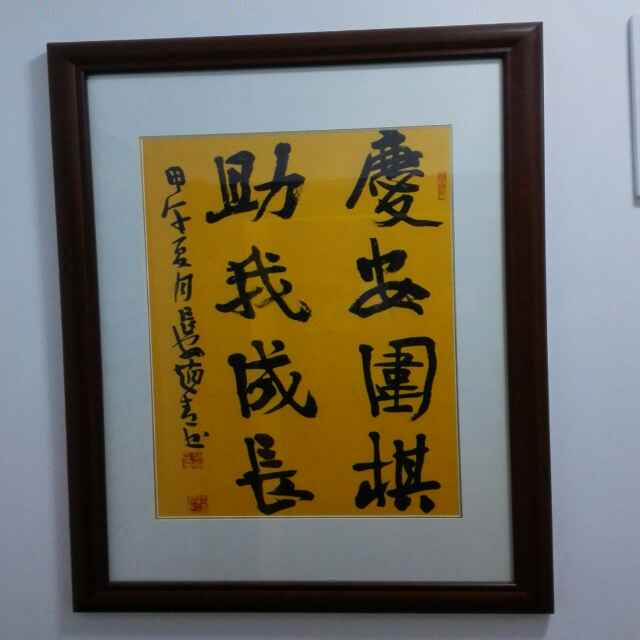 慶安圍棋
助我成長
甲午夏月